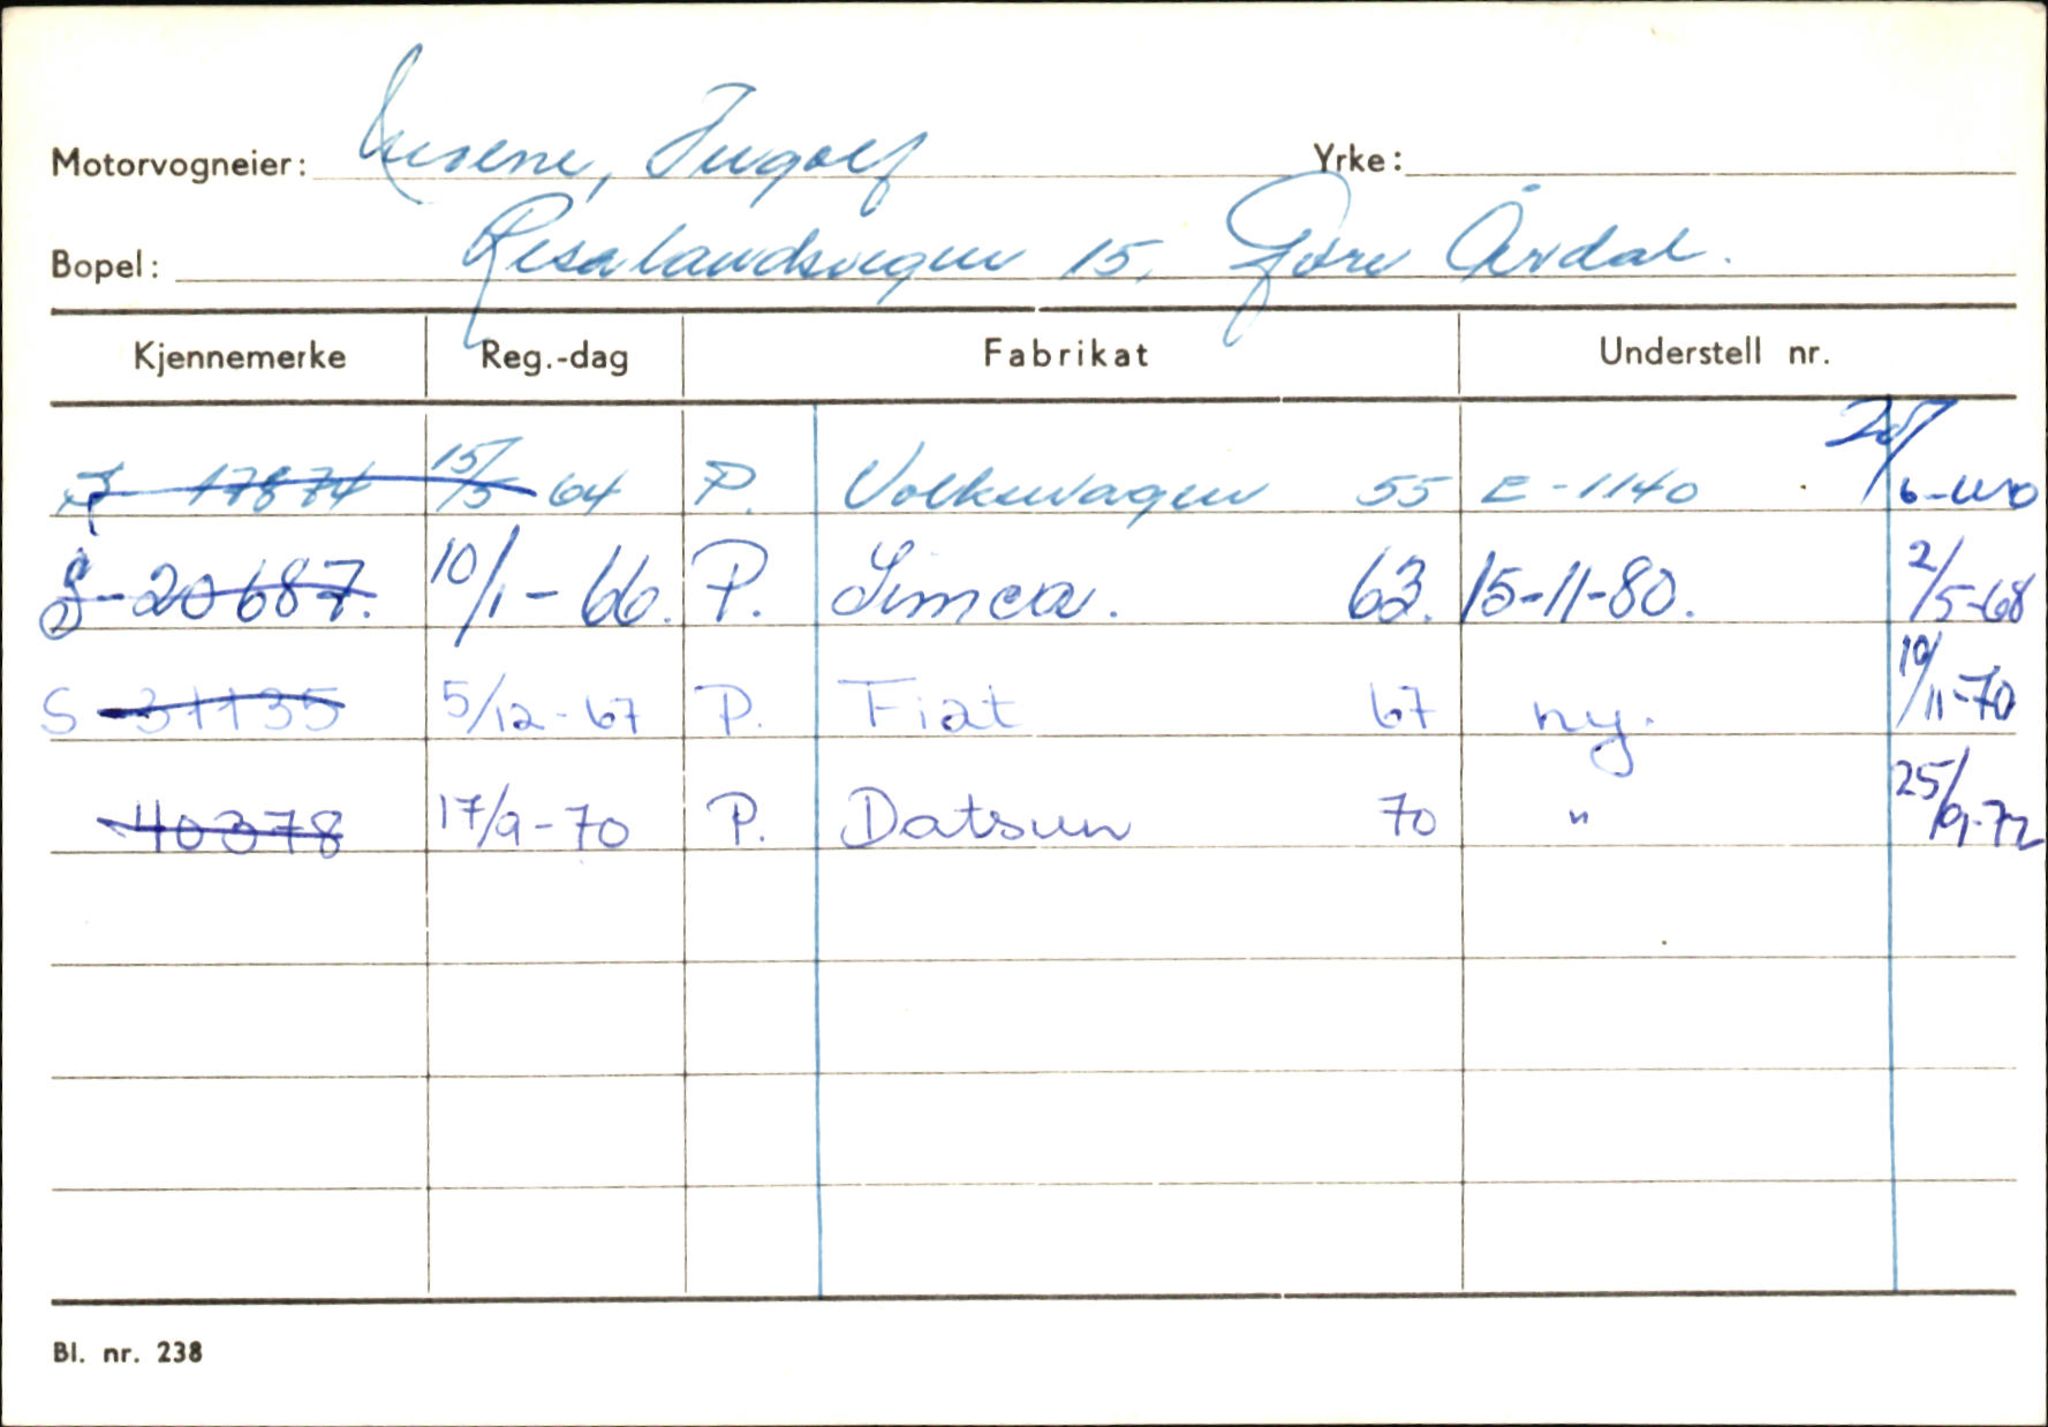 Motorvogneier: Ingolf Yrke:
Bopel: 15, Årdal.
Kjennemerke Reg.-dag Fabrikat Understell nr.
S 17874 15/5 64 P. Volkswagen 55 E-1140
S-20687. 10/1-66. P. Simca. 63. 15-11-80. 2/5-68
S 31135 5/12-67 P. Fiat 67 ny. 10/11-70
40378 17/9-70 P. Datsun 70 " 25/9-72
Bl. nr. 238